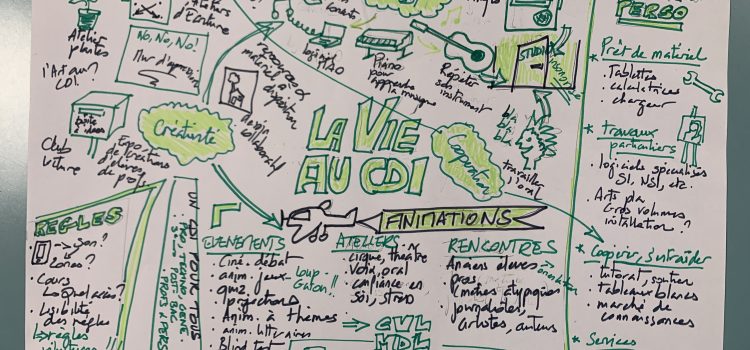 d'Écriture
Atelier
plantes
l'Art au
CDI.
NO, NO, NO!
Mur d'expression
boîte
à idées
Club
lecture
Créativité
Expositions
de créations
élèves
ressources et
matériel à
disposition
Dessin
collaboratif
Piano
pour
apprendre
la musique
Répéter
son
instrument
STUDIO
insonorisé
BLA
BLA
BLA
travailler
l'oral
LA VIE
AU CDI
Coopération
PERSO
* Prêt de matériel
. Tablettes
. calculatrices
. chargeur
* travaux
particuliers
. logiciels spécialisés
SI, NSI, etc.
. Arts pla
Gros volumes
installation?
* Coopérer, S'entraider
. tutorat, soutien
. Tableaux blancs
. marché de
connaissances
* Services
RÈGLES
-> Son?
-> Zones?
. Cours
. Lisibilité
des règles
règles
UN CDI POUR TOUS
PRO, TECHNO, GENE.
POST-BAC
PROFS & PERS
ANIMATIONS
EVENEMENTS
. Ciné-débat
. anim. jeux-
quiz
. projections
. Anim. à thèmes
. anim. littéraires
. Blind test
Loup-
Garou!!
ATELIERS
cirque, théâtre
Voix, oral
confiance en
soi, stress
RENCONTRES
Anciens élèves
orientation
pros,
(métiers atypiques
journalistes,
artistes, auteurs
=> CVL
MDL